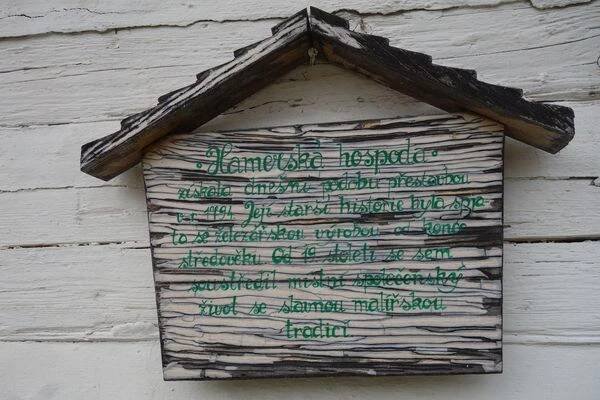 · Hamerská hospoda ·
získala dnešní podobu přestavbou
v r. 1924. Její starší historie byla spja-
ta se železářskou výrobou od konce
středověku. Od 19. století se sem
soustředil místní společenský
život se slavnou malířskou
tradicí